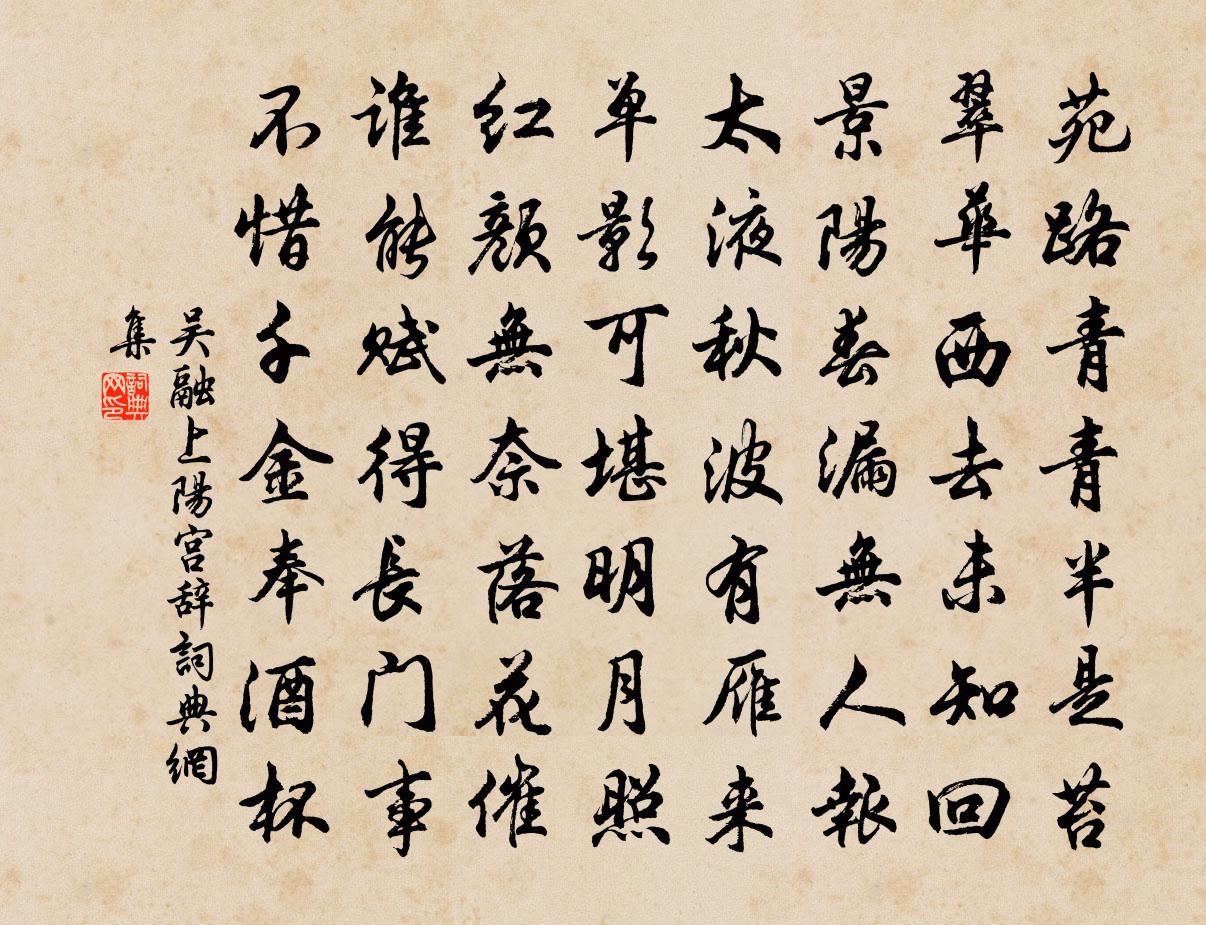 苑路青青半是苔
翠華西去未知回
景陽春漏無人報
太液秋波有雁来
单影可堪明月照
红颜無奈落花催
谁能赋得長门事
不惜千金奉酒杯
吴融上陽宫辞詞典網
集
詞典
网印